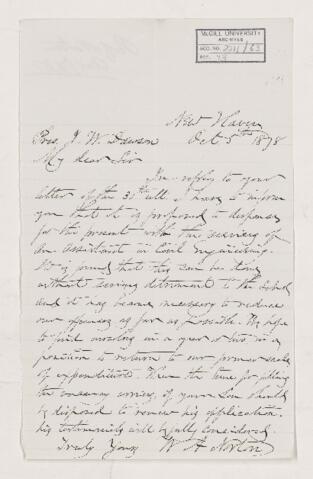 McGILL UNIVERSITY
ARCHIVES
ACC. NO.
New Haven
Oct 5th 1878
Pres. J. W. Dawson
My dear Sir
In reply to your
letter of the 30th ult. I have to inform
you that it is proposed to dispense
for the present with the services of
an assistant in Civil Engineering.
It is found that this can be done
without serious detriment to the
and it may become necessary to reduce
our expenses as far as possible. We hope
to find ourselves in a year or two in a
position to return to our former scale
of expenditure. When the time for filling
the vacancy arrives, if your Son should
be disposed to renew his application
his testimonials will be fully considered.
Truly Yours W A Norton